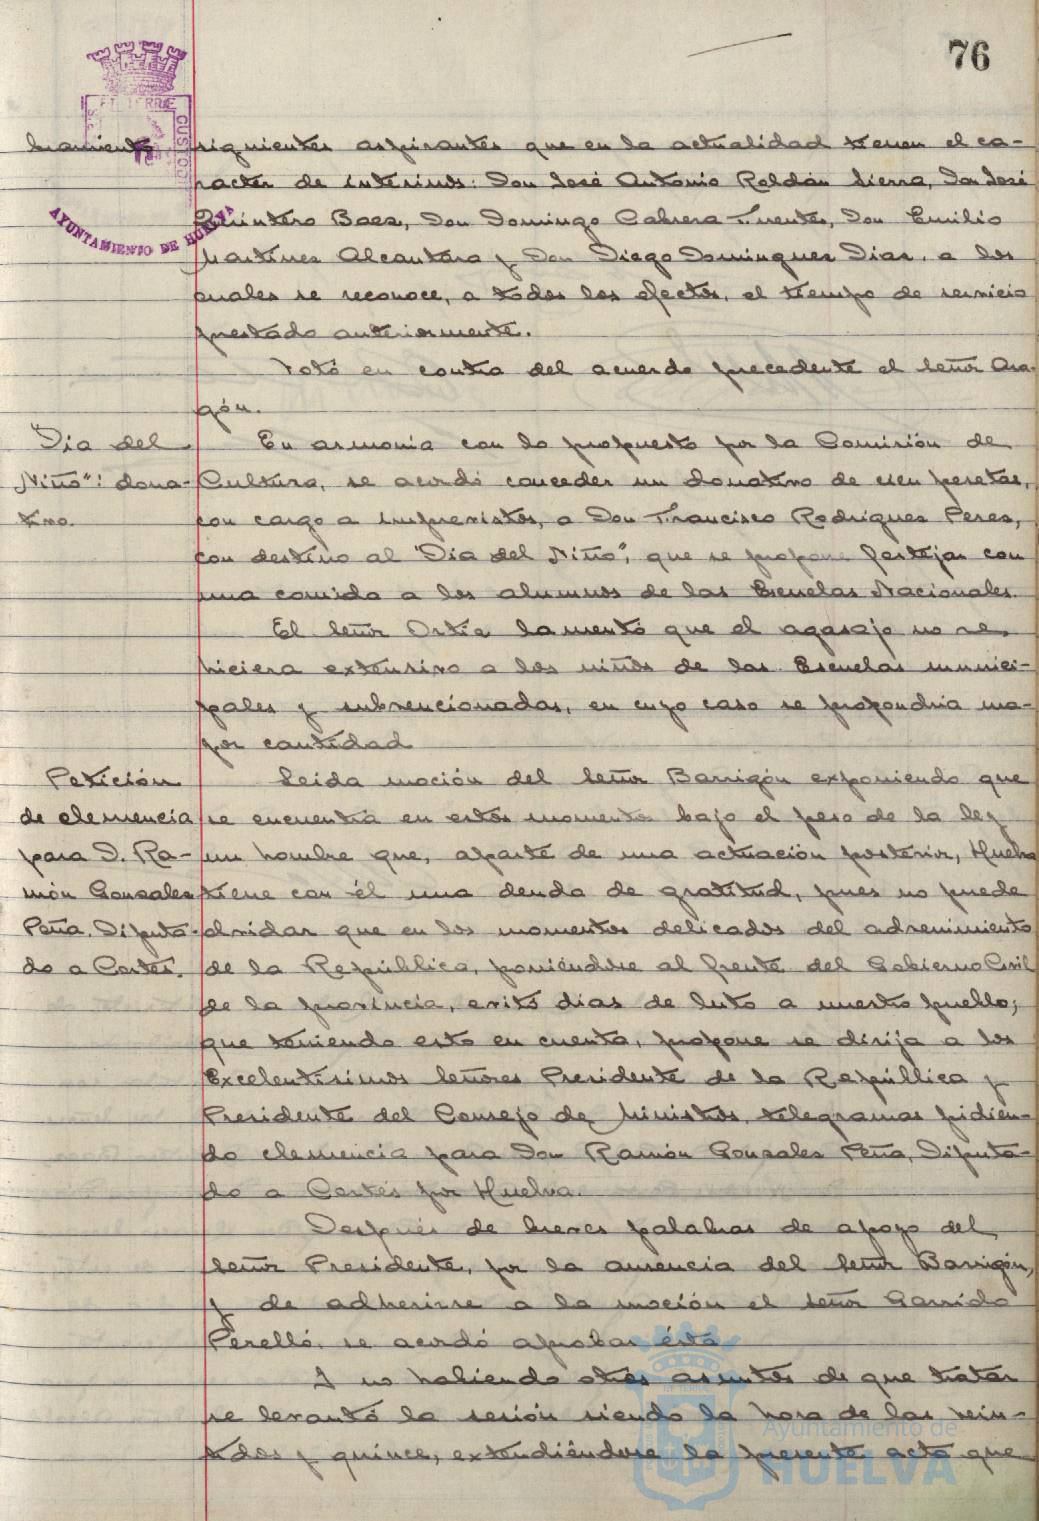 76
bramiento
siguientes aspirantes que en la actualidad tienen el ca-
racter de interinos: Don José Antonio Roldán Sierra, Don José
Quintero Baez, Don Domingo Cabrera Fuentes, Don Emilio
Martínez Alcantara y Don Diego Dominguez Diaz, a los
cuales se reconoce, a todos los efectos, el tiempo de servicio
prestado anteriormente.
Votó en contra del acuerdo precedente el Señor Ara-
gón.
"Dia del
Niño": dona-
tivo.
En armonia con lo propuesto por la Comisión de
Cultura, se acordó conceder un donativo de cien pesetas,
con cargo a imprevistos, a Don Francisco Rodrigues Peres,
con destino al "Dia del Niño", que se propone festejar con
una comida a los alumnos de las Escuelas Nacionales.
El Señor Ortiz lamentó que el agasajo no se
hiciera extensivo a los niños de las Escuelas munici-
pales y subvencionadas, en cuyo caso se propondria ma-
yor cantidad
Petición
de clemencia
para D. Ra-
món Gonzales
Peña, Diputa-
do a Cortes.
Leida moción del Señor Barrigón exponiendo que
se encuentra en estos momentos bajo el peso de la ley
un hombre que, aparte de una actuación posterior, Huelva
tiene con él una deuda de gratitud, pues no puede
olvidar que en los momentos delicados del advenimiento
de la República, poniéndose al frente del Gobierno Civil
de la provincia, evitó dias de luto a nuestro pueblo;
que teniendo esto en cuenta, propone se dirija a los
Excelentisimos Señores Presidente de la República y
Presidente del Consejo de Ministros, telegramas pidien-
do clemencia para Don Ramón Gonzales Peña, Diputa-
do a Cortes por Huelva.
Después de breves palabras de apoyo del
Señor Presidente, por la ausencia del Señor Barrigón,
y de adherirse a la moción el señor Garrido
Perelló, se acordó aprobar ésta
Y no habiendo otros asuntos de que tratar
se levantó la sesión siendo la hora de las vein-
tidos y quince, extendiéndose la presente acta que
AYUNTAMIENTO DE HUELVA
Ayuntamiento de
HUELVA